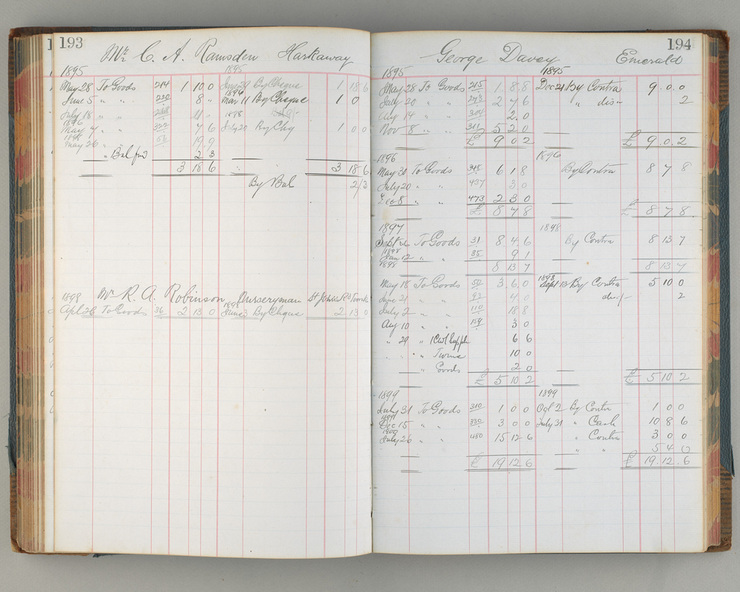 193
Mr. C. A. Ramsden Harkaway
1895 1895
May 28 To Goods 1 10 0 By Cheque 1 18 6
June 5 " " 8 - 1896 Mar 11 By Cheque 1 0
July 18 " " 11 - 1898
1896 May 7 " 7 6 July 20 By Chq 1 0 0
1898 May 26 " 19 9
" Bal fwd 2 3
3 18 6 3 18 6
By Bal 2/3
Mr R. A. Robinson Nurseryman
1898 1898
Apl 26 To Goods 36 2 13 0 June 3 By Cheque 2 13 0
194
George Davey Emerald
1895 1895
May 28 To Goods 1 8 8 Dec 21 By Contra 9 0 0
July 20 " " 2 7 6 " dis 2
Aug 14 " " 2 0
Nov 8 " " 5 2 0
£ 9 0 2 £ 9 0 2
1896 1896
May 20 To Goods 6 1 8 By Contra 8 7 8
July 20 " " 3 0
" " 473 2 3 0
£ 8 7 8 £ 8 7 8
1897 1898
To Goods 31 8 4 6 By Contra 8 13 7
1898 " " 9 1
8 13 7 8 13 7
1898 1898
May 18 To Goods 3 6 0 Sept 13 By Contra 5 10 0
June 21 " " 4 0 2
July 2 " " 110 18 8
Aug 10 " " 3 0
" 29 " 6 6
" " Twine 10 0
" Goods 2 0
£ 5 10 2 £ 5 10 2
1899 1899
July 31 To Goods 310 1 0 0 Oct 2 By Contra 1 0 0
1899 Dec 15 " " 3 0 0 July 21 " Cash 10 8 6
1900 July 26 " " 450 15 12 6 " Contra 3 0 0
" " 5 4 0
£ 19 12 6 £ 19 12 6